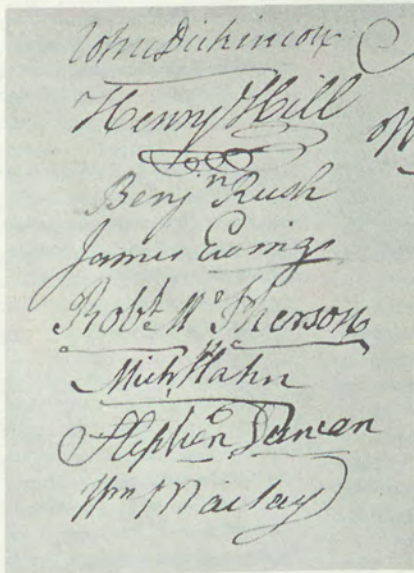 John Dickinson
Henry Hill
Benjn Rush
James Ewing
Robt McPherson
Michl Hahn
Stephen Duncan
Wm Maclay